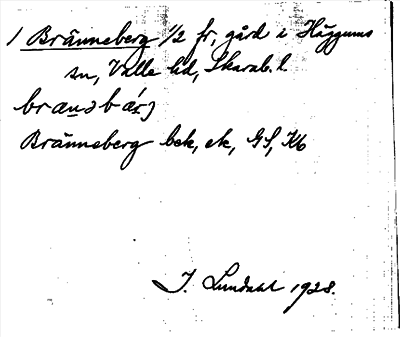 1 Bränneberg 1/2 fr, gård i Häggums
sn, Valle hd, Skarab. l
Bränneberg bek, ek, GS, Kb
I. Lundahl 1928.